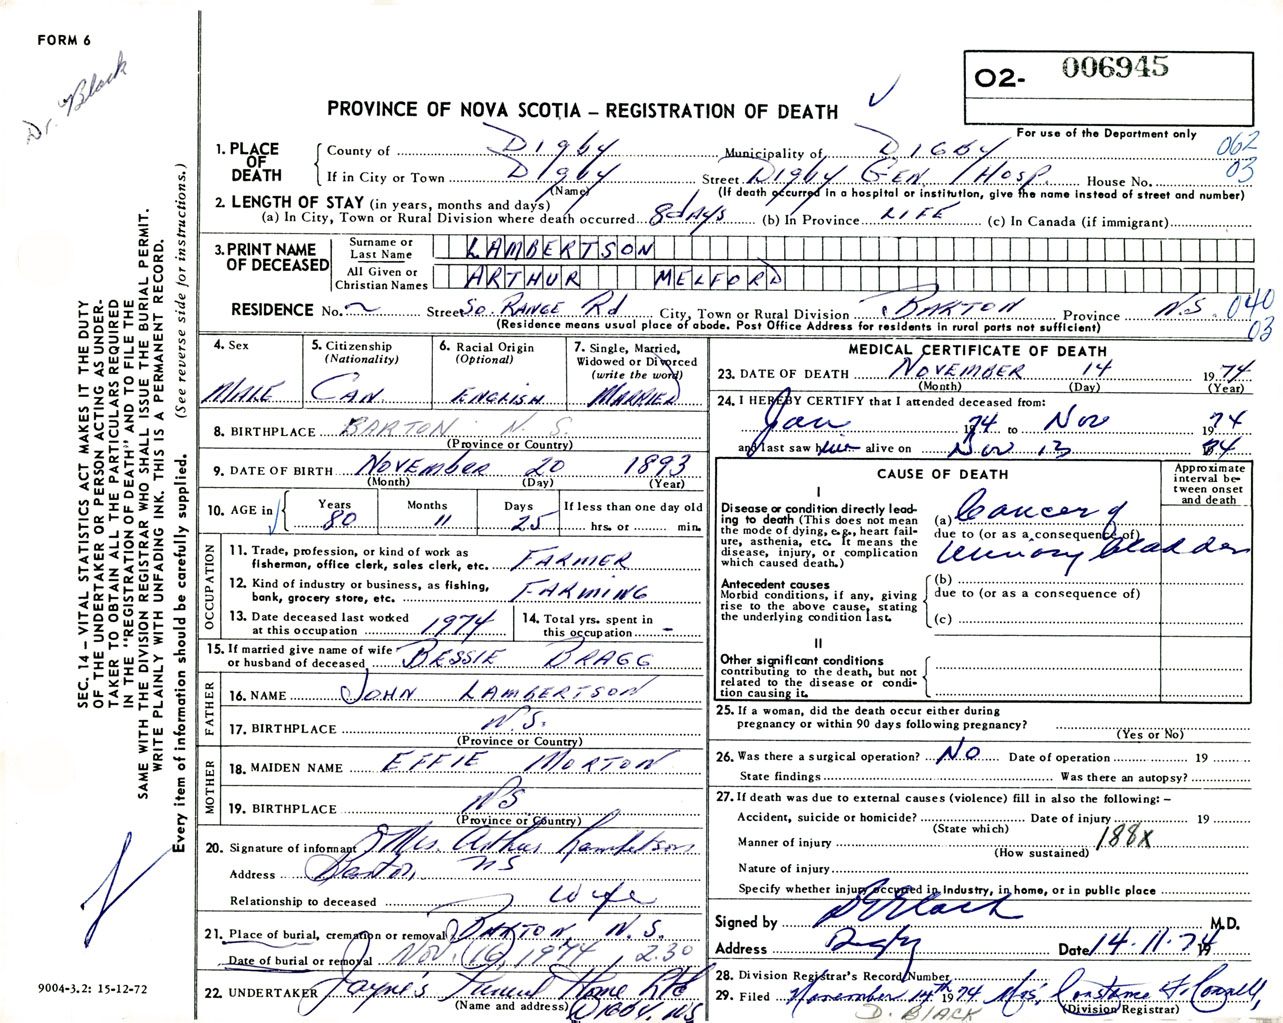 FORM 6
Dr. Black
O2- 006945
PROVINCE OF NOVA SCOTIA – REGISTRATION OF DEATH
For use of the Department only
062
03
1. PLACE OF DEATH
County of Digby Municipality of Digby
If in City or Town Digby Street Digby Gen. Hosp. House No.
(Name) (If death occurred in a hospital or institution, give the name instead of street and number)
2. LENGTH OF STAY (in years, months and days)
(a) In City, Town or Rural Division where death occurred 8 days (b) In Province LIFE (c) In Canada (if immigrant)
3. PRINT NAME OF DECEASED
Surname or Last Name LAMBERTSON
All Given or Christian Names ARTHUR MELFORD
RESIDENCE No. ~ Street So. Range Rd City, Town or Rural Division BARTON Province N.S. 040
(Residence means usual place of abode. Post Office Address for residents in rural parts not sufficient) 03
4. Sex
MALE
5. Citizenship
(Nationality)
CAN
6. Racial Origin
(Optional)
ENGLISH
7. Single, Married,
Widowed or Divorced
(write the word)
MARRIED
8. BIRTHPLACE BARTON N.S.
(Province or Country)
9. DATE OF BIRTH NOVEMBER 20 1893
(Month) (Day) (Year)
10. AGE in
Years 80
Months 11
Days 25
If less than one day old
hrs. or min.
OCCUPATION
11. Trade, profession, or kind of work as
fisherman, office clerk, sales clerk, etc. FARMER
12. Kind of industry or business, as fishing,
bank, grocery store, etc. FARMING
13. Date deceased last worked
at this occupation 1974
14. Total yrs. spent in
this occupation –
15. If married give name of wife
or husband of deceased BESSIE BRAGG
FATHER
16. NAME JOHN LAMBERTSON
17. BIRTHPLACE N.S.
(Province or Country)
MOTHER
18. MAIDEN NAME EFFIE MORTON
19. BIRTHPLACE NS
(Province or Country)
20. Signature of informant Mrs. Arthur Lambertson
Address Barton, NS
Relationship to deceased Wife
21. Place of burial, cremation or removal BARTON, N.S.
Date of burial or removal Nov. 16, 1974 2.30
22. UNDERTAKER Jayne's Funeral Home Ltd
(Name and address) DIGBY, NS
MEDICAL CERTIFICATE OF DEATH
23. DATE OF DEATH NOVEMBER 14 1974
(Month) (Day) (Year)
24. I HEREBY CERTIFY that I attended deceased from:
Jan 1974 to Nov 1974
and last saw him alive on Nov 13 74
CAUSE OF DEATH
Approximate
interval be-
tween onset
and death
I
Disease or condition directly lead-
ing to death (This does not mean
the mode of dying, e.g., heart fail-
ure, asthenia, etc. It means the
disease, injury, or complication
which caused death.)
(a) Cancer of
due to (or as a consequence of)
urinary bladder
Antecedent causes
Morbid conditions, if any, giving
rise to the above cause, stating
the underlying condition last.
(b)
due to (or as a consequence of)
(c)
II
Other significant conditions
contributing to the death, but not
related to the disease or condi-
tion causing it.
25. If a woman, did the death occur either during
pregnancy or within 90 days following pregnancy?
(Yes or No)
26. Was there a surgical operation? NO Date of operation 19
State findings Was there an autopsy?
27. If death was due to external causes (violence) fill in also the following: –
Accident, suicide or homicide? Date of injury 19
(State which)
Manner of injury 188X
(How sustained)
Nature of injury
Specify whether injury occupied in Industry, in home, or in public place
Signed by D Black M.D.
Address Digby Date 14.11.74 19
28. Division Registrar's Record Number
29. Filed November 14th 1974 Mrs. Constance
(Division Registrar)
D. BLACK
SEC. 14 – VITAL STATISTICS ACT MAKES IT THE DUTY
OF THE UNDERTAKER OR PERSON ACTING AS UNDER-
TAKER TO OBTAIN ALL THE PARTICULARS REQUIRED
IN THE "REGISTRATION OF DEATH" AND TO FILE THE
SAME WITH THE DIVISION REGISTRAR WHO SHALL ISSUE THE BURIAL PERMIT.
WRITE PLAINLY WITH UNFADING INK. THIS IS A PERMANENT RECORD.
Every item of information should be carefully supplied. (See reverse side for instructions.)
9004-3.2: 15-12-72